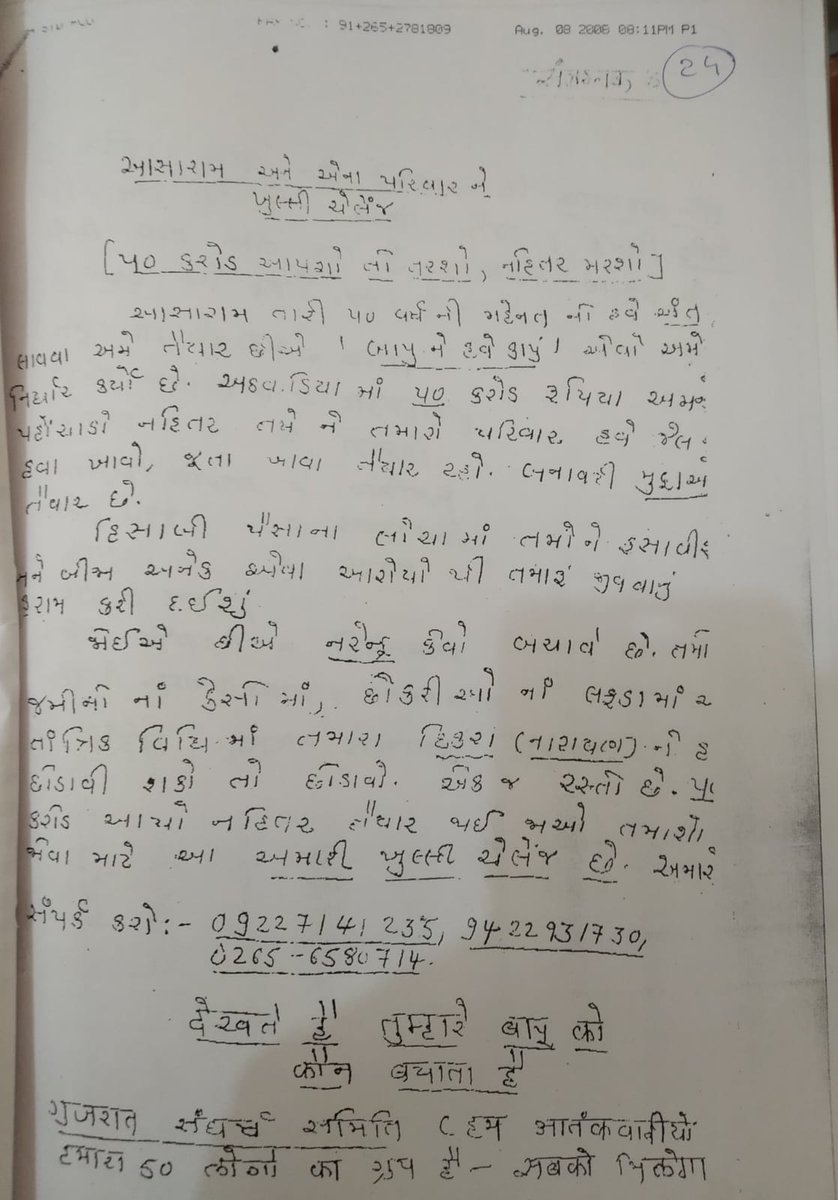 : 91+265+2781809 Aug. 08 2008 08:11PM P1
24
આસારામ અને એના પરિવાર ને
ખુલ્લી ચેલેંજ
[૫૦ કરોડ આપશો તો તરશો, નહિતર મરશો]
આસારામ તારી ૫૦ વર્ષ ની મહેનત નો હવે અંત
લાવવા અમે તૈયાર છીએ 'બાપુ ને હવે કાપું' એવો અમે
નિર્ધાર કર્યો છે. અઠવાડિયા માં ૫૦ કરોડ રૂપિયા અમને
પહોંચાડો નહિતર તમે ને તમારો પરિવાર હવે જેલ
હવા ખાવો, જૂતા ખાવા તૈયાર રહો. બનાવટી મુદ્દાઓ
તૈયાર છે.
હિસાબી પૈસાના લોચા માં તમોને ફસાવી
અને બીજા અનેક એવા આરોપો થી તમારું જીવવાનું
હરામ કરી દઈશું
જોઈએ છીએ નરેન્દ્ર કેવો બચાવે છે. તમો
જમીનો નાં કેસો માં, છોકરીઓ નાં લફડામાં
તાંત્રિક વિધિ માં તમારા દિકરા (નારાયણ) ને
છોડાવી શકો તો છોડાવો. એક જ રસ્તો છે.
કરોડ આપો નહિતર તૈયાર થઈ જાઓ તમાશો
જોવા માટે આ અમારી ખુલ્લી ચેલેંજ છે. અમારો
સંપર્ક કરો:- 09227141235, 9422931730,
0265-6580714.
देखते है तुम्हारे बापु को
कौन बचाता है
गुजरात संघर्ष समिति (हम आतंकवादीयो
हमारा 50 लोगो का ग्रुप है - सबको मिलेगा